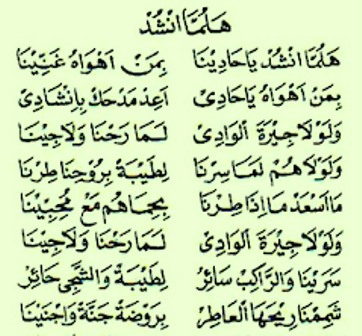 هَلُمَّا انْشُدْ
هَلُمَّا انْشُدْ يَاحَادِيْنَا بِمَنْ اَهْوَاهُ غَنِّيْنَا
بِمَنْ اَهْوَاهُ يَاحَادِى اَعِدْ مَدْحَكْ بِانْشَادِى
وَلَوْلَاجِيْرَةَ الْوَادِى لَمَا رَحْنَا وَلَاجِيْنَا
وَلَوْلَاهُمْ لَمَا سِرْنَا لِطَيْبَةْ بِرُوْحِنَا طِرْنَا
مَا اَسْعَدْ مَا اِذَا طِرْنَا بِحِمَاهُمْ مَعْ مُحِبِّيْنَا
وَلَوْلَاجِيْرَةَ الْوَادِى لَمَا رَحْنَا وَلَاجِيْنَا
سَرَيْنَا وَالرَّاكِبْ سَائِرْ لِطَيْبَةْ وَالشَّجِى حَائِرْ
شَمِمْنَا رِيْحَهَا الْعَاطِرْ بِرَوْضَةْ جَنَّةْ وَاجْنَيْنَا